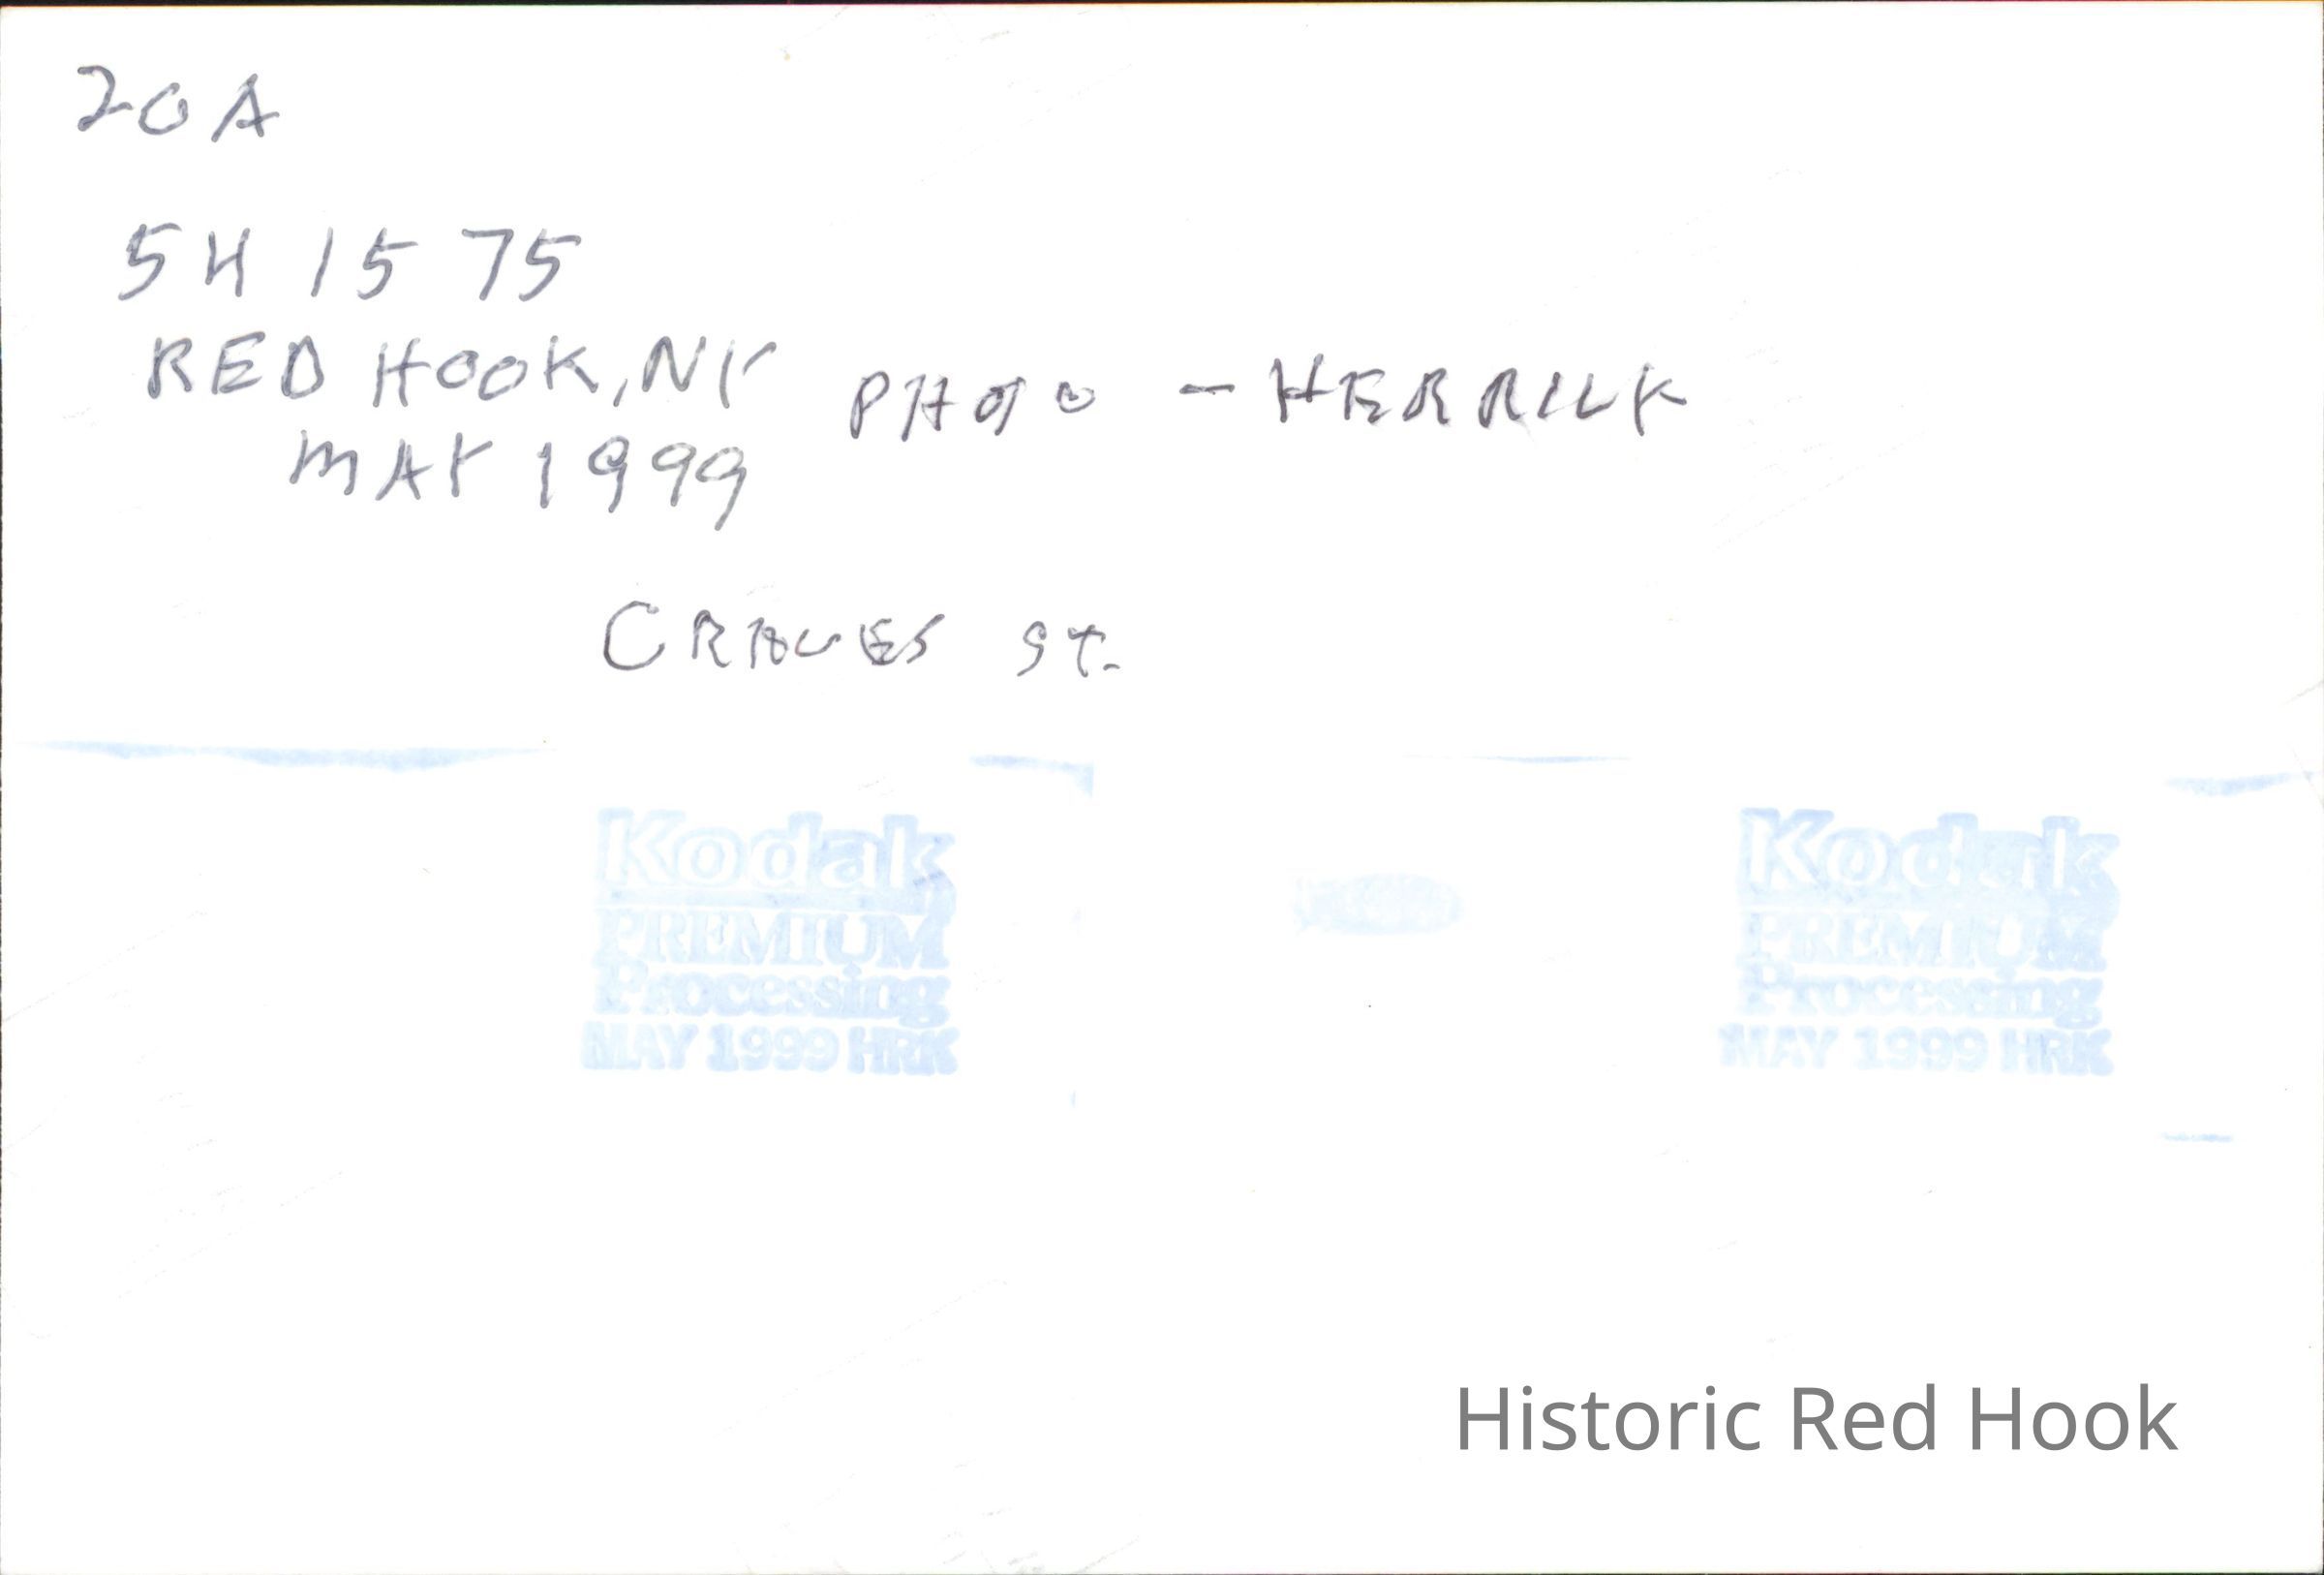 20A
5H 15 75
RED HOOK, NY
PHOTO - HERRICK
MAY 1999
ST.
Kodak
PREMIUM
Processing
MAY 1999 HRK
Kodak
PREMIUM
Processing
MAY 1999 HRK
Historic Red Hook